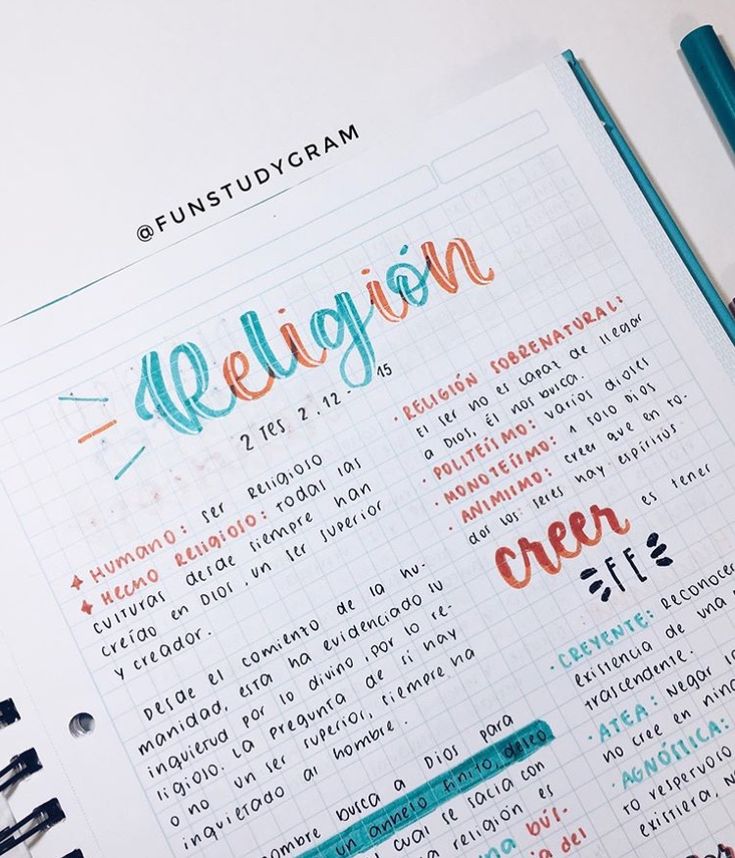 @FUNSTUDYGRAM
Religión
2 Tes 2, 12 - 15
HUMANO: ser Religioso
HECHO Religioso: Todas las
culturas desde siempre han
creído en Dios, un ser superior
y creador.
Desde el comienzo de la hu-
manidad, esta ha evidenciado su
inquietud por lo divino, por lo re-
ligioso. La pregunta de si hay
o no un ser superior, siempre ha
inquietado al hombre.
ombre busca a Dios para
un anhelo finito, deseo
cual se sacia con
a religión es
na bús-
ia del
· RELIGIÓN SOBRENATURAL:
El ser no es capaz de llegar
a Dios, Él nos busca.
· POLITEÍSMO: varios dioses
· MONOTEÍSMO: 1 solo Dios
· ANIMISMO: creer que en to-
dos los seres hay espíritus
creer es tener
FE
· CREYENTE: Reconocer
existencia de una
trascendente.
· ATEA: Negar la
no cree en ning
· AGNÓSTICA:
to respetuoso
existiera, N